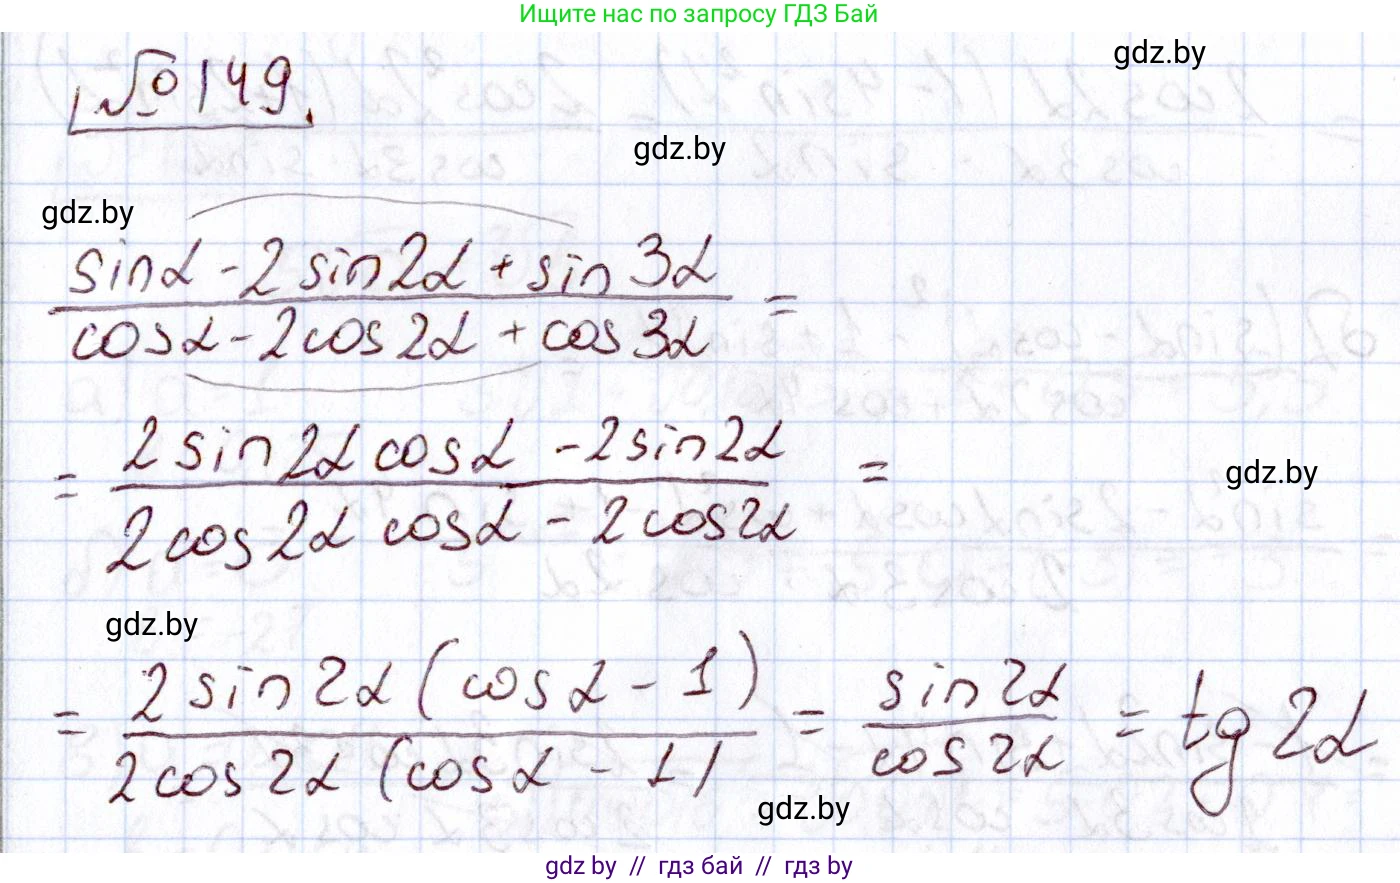 Ищите нас по запросу ГДЗ Бай
gdz.by
№ 149.
gdz.by
gdz.by
sinα - 2 sin2α + sin 3α
=
cosα - 2cos2α + cos 3α
= 2 sin 2α cosα - 2 sin2α =
2cos2α cosα - 2cos2α
gdz.by
gdz.by
= 2 sin 2α (cosα - 1) = sin2α = tg 2α
2cos2α (cosα - 1) cos2α
gdz.by
gdz by // гдз бай // гдз by